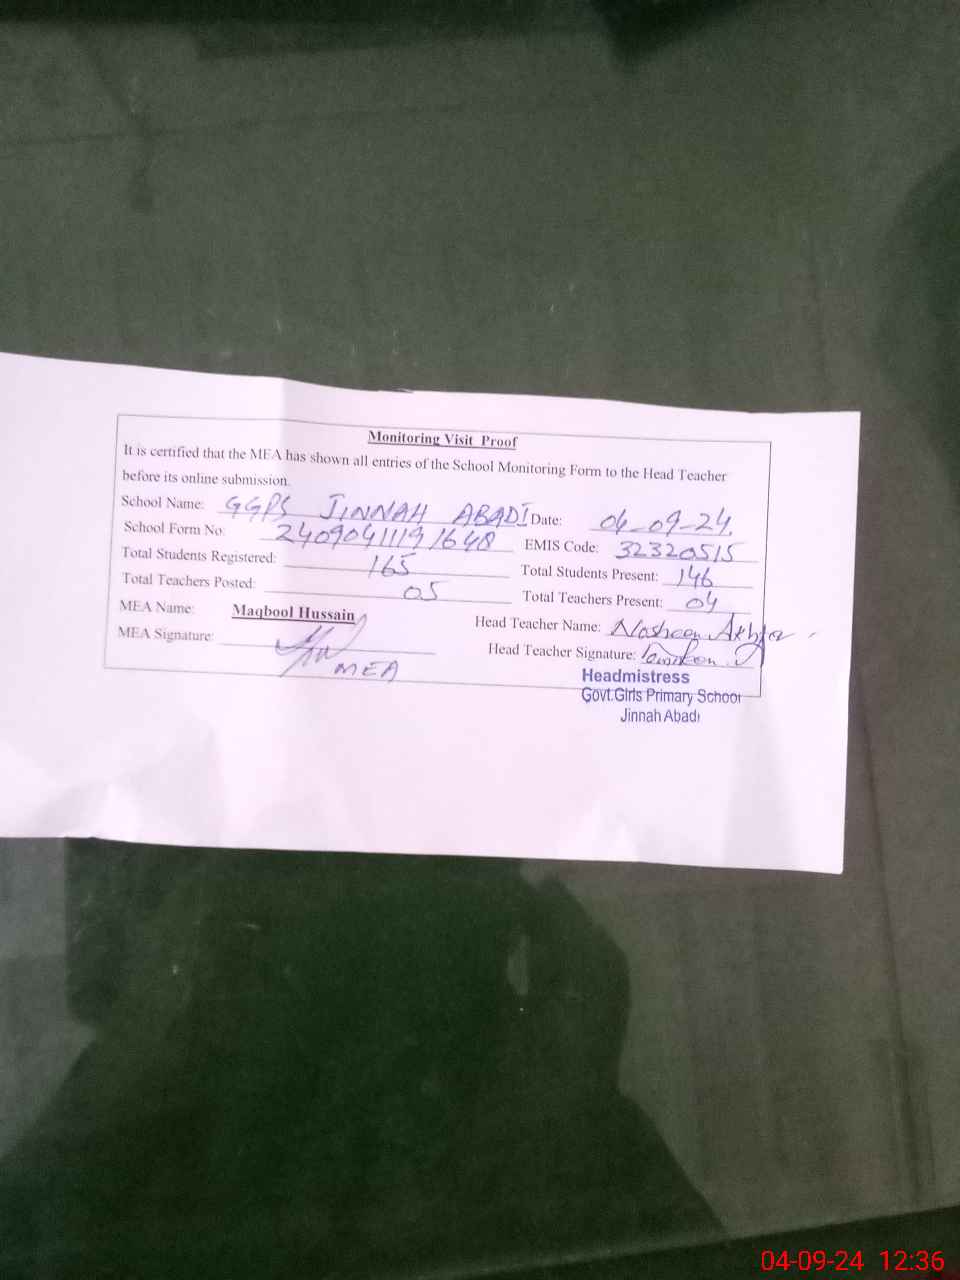 Monitoring Visit Proof
It is certified that the MEA has shown all entries of the School Monitoring Form to the Head Teacher
before its online submission.
School Name: GGPS JINNAH ABADI Date: 04-09-24.
School Form No: 24090411191648 EMIS Code: 32320515
Total Students Registered: 165 Total Students Present: 146
Total Teachers Posted: 05 Total Teachers Present: 04
MEA Name: Maqbool Hussain Head Teacher Name: Nosheen Akhter
MEA Signature: MEA Head Teacher Signature:
Headmistress
Govt.Girls Primary School
Jinnah Abadi
04-09-24 12:36